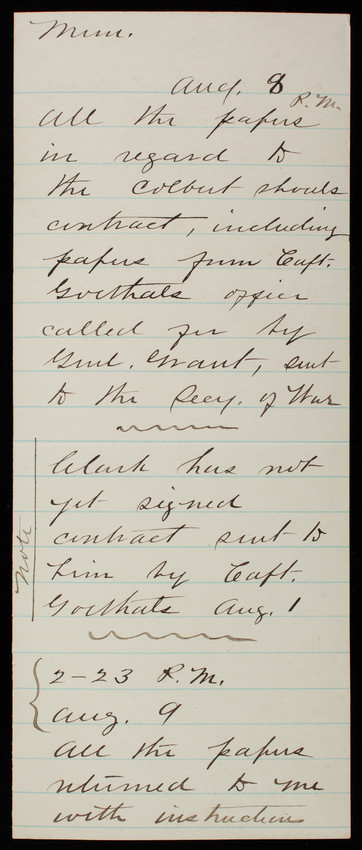 Mem.
Aug. 8
P.M.
All the papers
in regard to
the Colbert shoals
contract, including
papers from Capt.
Goethals office
called for by
Genl. Grant, sent
to the Secy. of War
Clark has not
yet signed
contract sent to
him by Capt.
Goethals Aug. 1
Note
2-23 P.M.
Aug. 9
All the papers
returned to me
with instructions